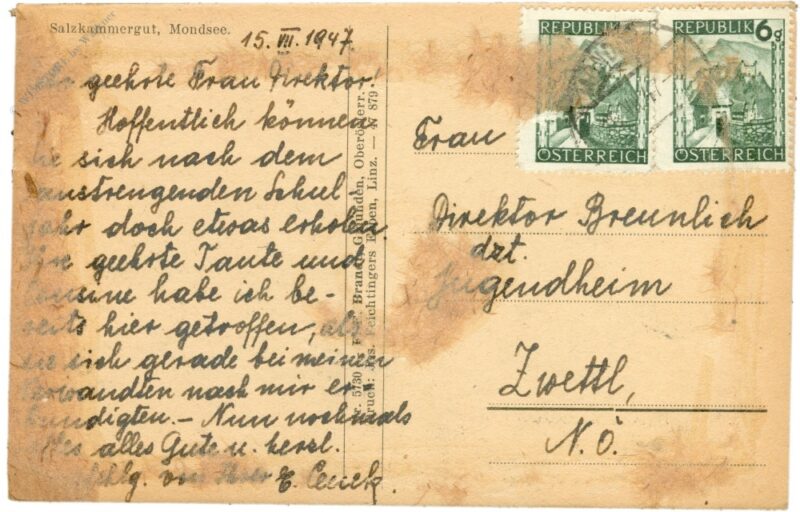 Salzkammergut, Mondsee.
15. VII. 1947.
geehrte Frau Direktor!
Hoffentlich können
Sie sich nach dem
anstrengenden Schul-
jahr doch etwas erholen.
Ihre geehrte Tante und
Cousine habe ich be-
reits hier getroffen, als
sie sich gerade bei meinen
Verwandten nach mir er-
kundigten. – Nun nochmals
alles Gute u. herzl.
von Ihrer E.
Nr. 5730 Brandt, Gmunden, Oberösterr.
Druck: Jos. Feichtingers Erben, Linz. — 47 879
REPUBLIK
ÖSTERREICH
REPUBLIK 6g
ÖSTERREICH
Frau
Direktor Breunlich
dzt.
Jugendheim
Zwettl,
N.Ö.